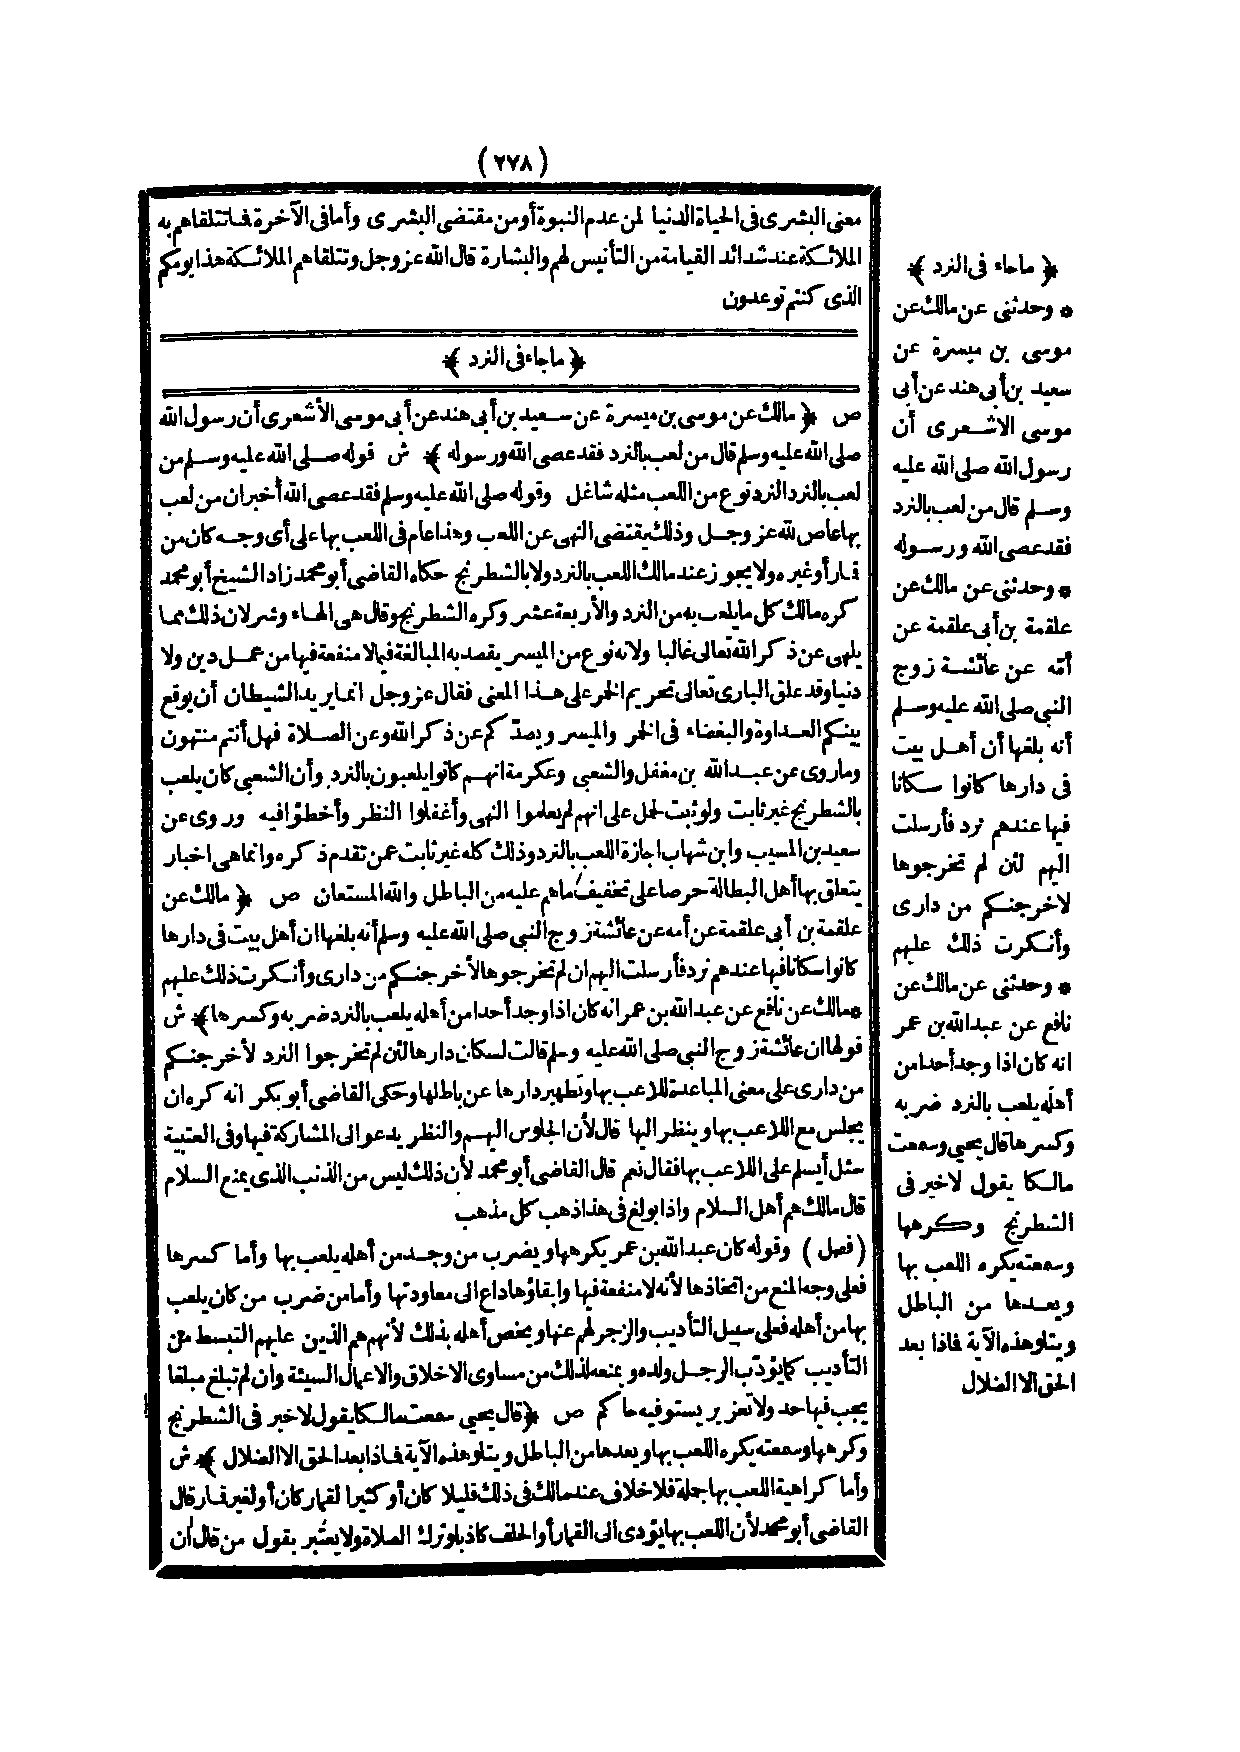 (٢٧٨)
معنى البشرى فى الحياة الدنيا لمن عدم النبوة أومن مقتضى البشرى وأما فى الآخرة فما تتلقاهم به
الملائكة عند شدائد القيامة من التأنيس لهم والبشارة قال الله عز وجل وتتلقاهم الملائكة هذا يومكم
الذى كنتم توعدون
﴿ ماجاء فى النرد ﴾
ص ﴿ مالك عن موسى بن ميسرة عن سعيد بن أبى هند عن أبى موسى الأشعرى أن رسول الله
صلى الله عليه وسلم قال من لعب بالنرد فقد عصى الله ورسوله ﴾ ش قوله صلى الله عليه وسلم من
لعب بالنرد النرد نوع من اللعب مثله شاغل وقوله صلى الله عليه وسلم فقد عصى الله أخبر ان من لعب
بها عاص لله عز وجل وذلك يقتضى النهى عن اللعب وهذا عام فى اللعب بها على أى وجه كان من
قمار أو غيره ولا يجوز عند مالك اللعب بالنرد ولا بالشطرنج حكاه القاضى أبو محمد زاد الشيخ أبو محمد
كره مالك كل ما يلعب به من النرد والأربعة عشر وكره الشطرنج وقال هى الهاء وشر لان ذلك مما
يلهى عن ذكر الله تعالى غالبا ولانه نوع من الميسر يقصد به المبالغة فيما لا منفعة فيها من عمل دين ولا
دنيا وقد علق البارى تعالى تحريم الخمر على هذا المعنى فقال عز وجل انما يريد الشيطان أن يوقع
بينكم العداوة والبغضاء فى الخمر والميسر ويصدّكم عن ذكر الله وعن الصلاة فهل أنتم منتهون
وما روى عن عبد الله بن مغفل والشعبى وعكرمة انهم كانوا يلعبون بالنرد وأن الشعبى كان يلعب
بالشطرنج غير ثابت ولو ثبت لحمل على انهم لم يعلموا النهى وأغفلوا النظر وأخطؤا فيه وروى عن
سعيد بن المسيب وابن شهاب اجازة اللعب بالنرد وذلك كله غير ثابت عمن تقدم ذكره وانما هى اخبار
يتعلق بها أهل البطالة حرصا على تخفيف ماهم عليه من الباطل والله المستعان ص ﴿ مالك عن
علقمة بن أبى علقمة عن أمه عن عائشة زوج النبي صلى الله عليه وسلم أنه بلغها ان أهل بيت فى دارها
كانوا سكانا فيها عندهم نرد فأرسلت اليهم ان لم تخرجوها لأخرجنكم من دارى وأنكرت ذلك عليهم
* مالك عن نافع عن عبد الله بن عمر انه كان اذا وجد أحدا من أهله يلعب بالنرد ضربه وكسرها ﴾ ش
قولها ان عائشة زوج النبي صلى الله عليه وسلم قالت لسكان دارها لئن لم تخرجوا النرد لأخرجنكم
من دارى على معنى المباعدة للاعب بها وتطهير دارها عن باطلها وحكى القاضى أبو بكر انه كره ان
يجلس مع اللاعب بها وينظر اليها قال لأن الجلوس اليهم والنظر يدعو الى المشاركة فيها وفى العتبية
سئل أيسلم على اللاعب بها فقال نعم قال القاضى أبو محمد لأن ذلك ليس من الذنب الذى يمنع السلام
قال مالك هم أهل السلام واذا بولغ فى هذا ذهب كل مذهب
(فصل) وقوله كان عبد الله بن عمر يكرهها ويضرب من وجد من أهله يلعب بها وأما كسرها
فعلى وجه المنع من اتخاذها لأنه لا منفعة فيها وابقاؤها داع الى معاودتها وأما من ضرب من كان يلعب
بها من أهله فعلى سبيل التأديب والزجر لهم عنها ويخص أهله بذلك لأنهم هم الذين عليهم التبسط من
التأديب كما يؤدّب الرجل ولده ويمنعه لذلك من مساوى الاخلاق والاعمال السيئة وان لم تبلغ مبلغا
يجب فيها حد ولا تعزير يستوفيه حاكم ص ﴿ قال يحيى سمعت مالكا يقول لا خير فى الشطرنج
وكرهها وسمعته يكره اللعب بها ويعدها من الباطل ويتلو هذه الآية فماذا بعد الحق الا الضلال ﴾ ش
وأما كراهية اللعب بها جملة فلا خلاف عند مالك فى ذلك قليلا كان أو كثيرا لقمار كان أو لغير قمار قال
القاضى أبو محمد لأن اللعب بها يؤدى الى القمار أو الحلف كاذبا وترك الصلاة ولا يعتبر بقول من قال أن
﴿ ماجاء فى النرد ﴾
* وحدثنى عن مالك عن
موسى بن ميسرة عن
سعيد بن أبى هند عن أبى
موسى الاشعرى أن
رسول الله صلى الله عليه
وسلم قال من لعب بالنرد
فقد عصى الله ورسوله
* وحدثنى عن مالك عن
علقمة بن أبى علقمة عن
أمّه عن عائشة زوج
النبي صلى الله عليه وسلم
أنه بلغها أن أهل بيت
فى دارها كانوا سكانا
فيها عندهم نرد فأرسلت
اليهم لئن لم تخرجوها
لاخرجنكم من دارى
وأنكرت ذلك عليهم
* وحدثنى عن مالك عن
نافع عن عبد الله بن عمر
انه كان اذا وجد أحدا من
أهله يلعب بالنرد ضربه
وكسرها قال يحيى وسمعت
مالكا يقول لا خير فى
الشطرنج وكرهها
وسمعته يكره اللعب بها
ويعدها من الباطل
ويتلو هذه الآية فماذا بعد
الحق الا الضلال